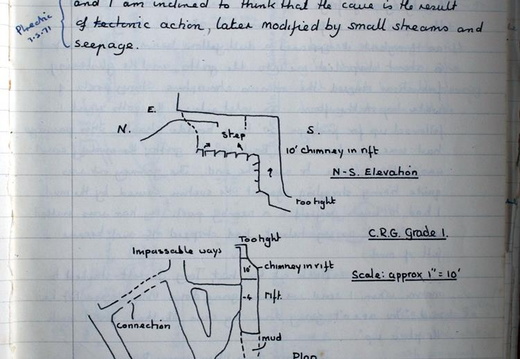 and I am inclined to think that the cave is the result
of tectonic action, later modified by small streams and
seepage.
Phreatic
7.3.71
E.
N.
S.
Step
10' chimney in rift
?
N-S. Elevation
Too tight
C.R.G. Grade 1.
Scale: approx 1" = 10'
Too tight
Impassable ways
10'
chimney in rift
rift.
connection
mud
Plan